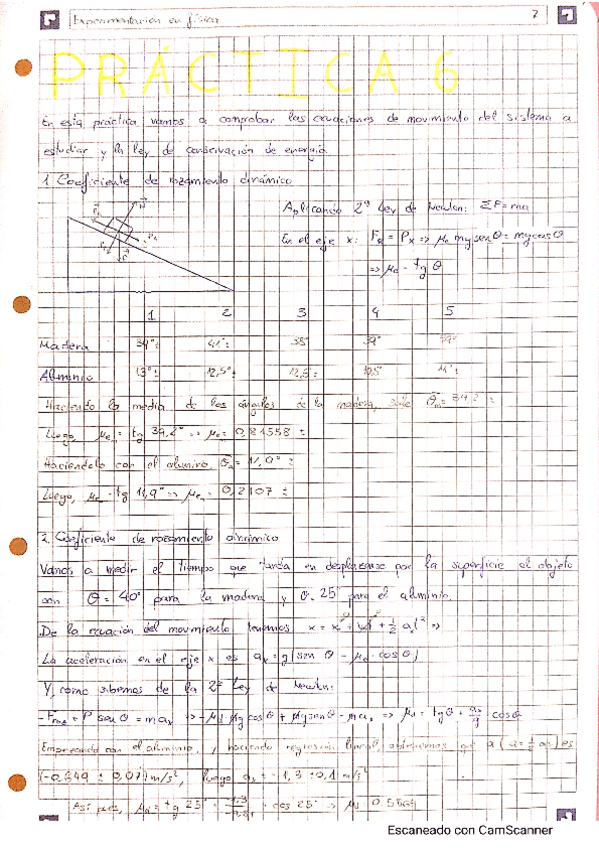 Experimentación en física 2
PRÁCTICA 6
En esta práctica vamos a comprobar las ecuaciones de movimiento del sistema a
estudiar y la ley de conservación de energía.
1. Coeficiente de rozamiento dinámico
Aplicando 2ª Ley de Newton: ΣF=ma
En el eje x: = Px => mg sen θ = mg cos θ
=> μe = tg θ
1 2 3 4 5
Madera 39° 41° 38° 39°
Aluminio 13° 12,5° 12,5°
Haciendo la media de los ángulos de la madera, sale = 39,2 ±
Luego, μe = tg 39,2° => μe = 0,81558 ±
Haciéndolo con el aluminio, = 11,9° ±
Luego, μe = tg 11,9° => μe = 0,2107 ±
2. Coeficiente de rozamiento dinámico
Vamos a medir el tiempo que tarda en desplazarse por la superficie el objeto
con θ = 40° para la madera y θ = 25 para el aluminio.
De la ecuación del movimiento tenemos x = x + + 1/2 a t² =>
La aceleración en el eje x es ax = g (sen θ - μd · cos θ)
Y, como sabemos de la 2ª Ley de Newton:
+ P sen θ = max => -μd mg cos θ + mg sen θ = max => μd = tg θ + cos θ
Empezando con el aluminio, y haciendo regresión lineal, obtenemos que a (a = 1/2 ax) es
(-0,649 ± 0,07) m/s², luego ax = -1,3 ± 0,1 m/s²
Así pues, μd = tg 25° cos 25° => μd 0.5869
Escaneado con CamScanner